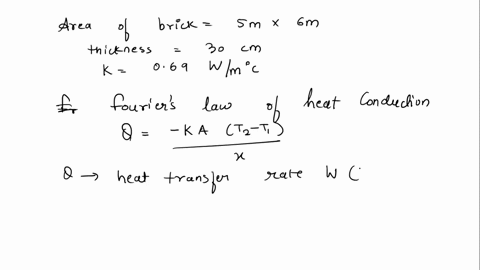 Area of brick = 5m × 6m
thickness = 30 cm
K = 0.69 W/m°c
f. fourier's law of heat Conduction
Q = -KA (T2-T1)
x
Q → heat transfer rate W (